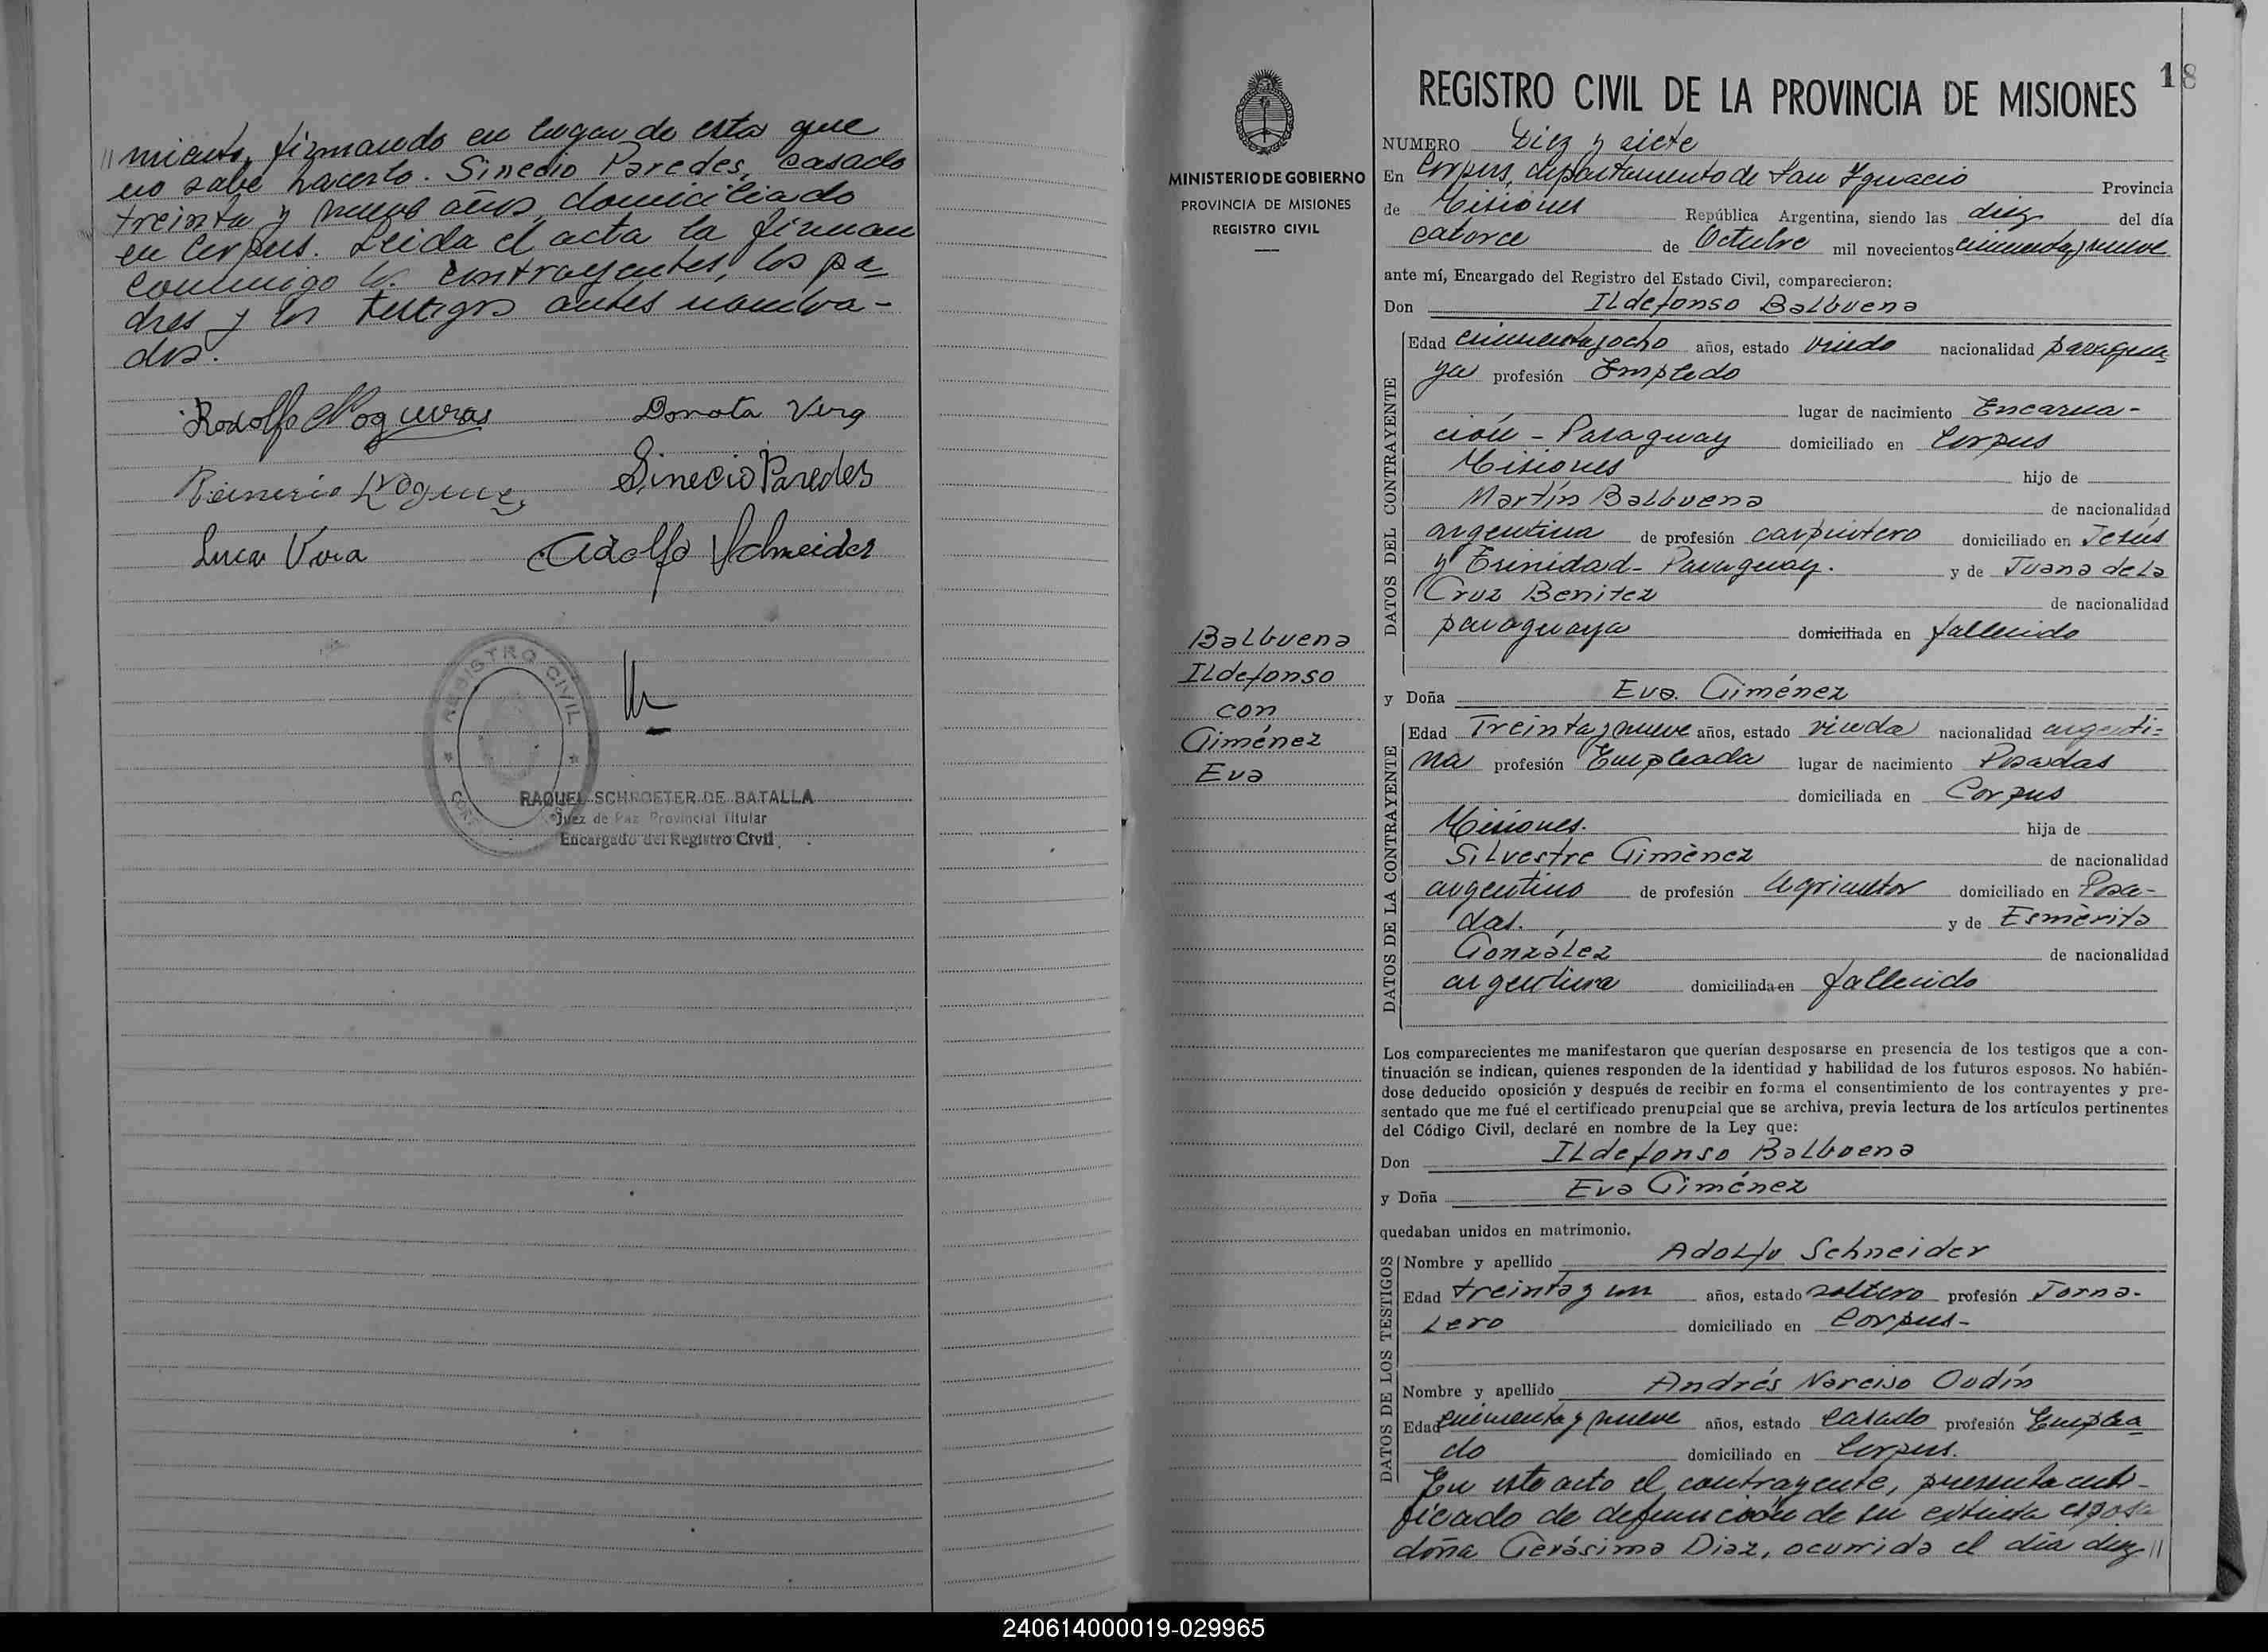 // miento, firmando en lugar de esta que
no sabe hacerlo. Sinecio Paredes, casado
treinta y nueve años, domiciliado
en Corpus. Leida el acta la firman
conmigo los contrayentes, los pa
dres y los testigos antes nombra-
dos.
Rodolfo Nogueras Donata Vera
Sinecio Paredes
Lucas Vera Adolfo Schneider
REGISTRO CIVIL
RAQUEL SCHROETER DE BATALLA
Juez de Paz Provincial Titular
Encargado del Registro Civil
MINISTERIO DE GOBIERNO
PROVINCIA DE MISIONES
REGISTRO CIVIL
Balbuena
Ildefonso
con
Giménez
Eva
18
REGISTRO CIVIL DE LA PROVINCIA DE MISIONES
NUMERO Diez y siete
En Corpus, departamento de San Ignacio Provincia
de Misiones República Argentina, siendo las diez del día
catorce de Octubre mil novecientos cincuenta y nueve
ante mí, Encargado del Registro del Estado Civil, comparecieron:
Don Ildefonso Balbuena
DATOS DEL CONTRAYENTE
Edad cincuenta y ocho años, estado viudo nacionalidad paragua
ya profesión Empledo
lugar de nacimiento Encarna-
ción - Paraguay domiciliado en Corpus
Misiones hijo de
Martín Balbuena de nacionalidad
argentina de profesión carpintero domiciliado en Jesús
y Trinidad - Paraguay. y de Juana de la
Cruz Benitez de nacionalidad
paraguaya domiciliada en fallecido
y Doña Eva Giménez
DATOS DE LA CONTRAYENTE
Edad Treinta y nueve años, estado viuda nacionalidad argenti-
na profesión Empleada lugar de nacimiento Posadas
domiciliada en Corpus
Misiones. hija de
Silvestre Giménez de nacionalidad
argentino de profesión Agricultor domiciliado en Posa-
das. y de Esmérita
González de nacionalidad
argentina domiciliada en fallecido
Los comparecientes me manifestaron que querían desposarse en presencia de los testigos que a con-
tinuación se indican, quienes responden de la identidad y habilidad de los futuros esposos. No habién-
dose deducido oposición y después de recibir en forma el consentimiento de los contrayentes y pre-
sentado que me fué el certificado prenupcial que se archiva, previa lectura de los artículos pertinentes
del Código Civil, declaré en nombre de la Ley que:
Don Ildefonso Balbuena
y Doña Eva Giménez
quedaban unidos en matrimonio.
DATOS DE LOS TESTIGOS
Nombre y apellido Adolfo Schneider
Edad treinta y un años, estado soltero profesión Jorna-
lero domiciliado en Corpus-
Nombre y apellido Andrés Narciso Oudín
Edad cincuenta y nueve años, estado casado profesión Emplea
do domiciliado en Corpus.
En este acto el contrayente, presenta certi-
ficado de defunción de su extinta esposa
doña Gerásima Diaz, ocurrida el día diez //
240614000019-029965